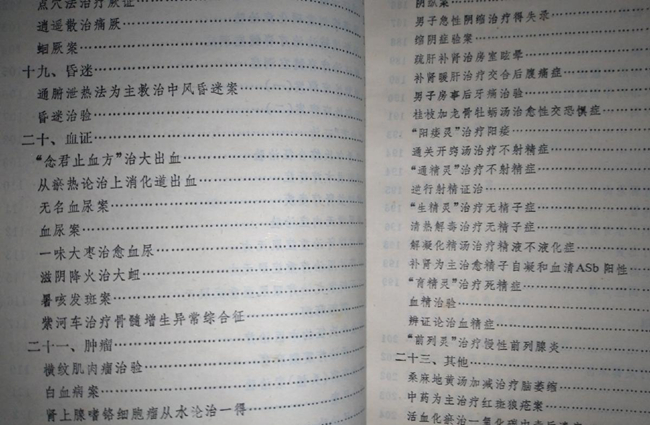 点穴法治疗厥证
逍遥散治痛厥
蛔厥案
十九、昏迷
通腑泄热法为主救治中风昏迷案
昏迷治验
二十、血证
“念君止血方”治大出血
从瘀热论治上消化道出血
无名血尿案
血尿案
一味大枣治愈血尿
滋阴降火治大衄
暑咳发斑案
紫河车治疗骨髓增生异常综合征
二十一、肿瘤
横纹肌肉瘤治验
白血病案
肾上腺嗜铬细胞瘤从水论治一得
阴纵案
男子急性阴缩治疗得失录
缩阴症验案
疏肝补肾治房室眩晕
补肾暖肝治疗交合后腹痛症
男子房事后牙痛治验
桂枝加龙骨牡蛎汤治愈性交恐惧症
“阳痿灵”治疗阳痿
通关开窍汤治疗不射精症
“通精灵”治疗不射精症
逆行射精证治
“生精灵”治疗无精子症
清热解毒治疗无精子症
解凝化精汤治疗精液不液化症
补肾为主治愈精子自凝和血清ASb阳性
“育精灵”治疗死精症
血精治验
辨证论治血精症
“前列灵”治疗慢性前列腺炎
二十三、其他
桑麻地黄汤加减治疗脑萎缩
中药为主治疗红斑狼疮案
活血化瘀治一氧化碳中毒后遗症